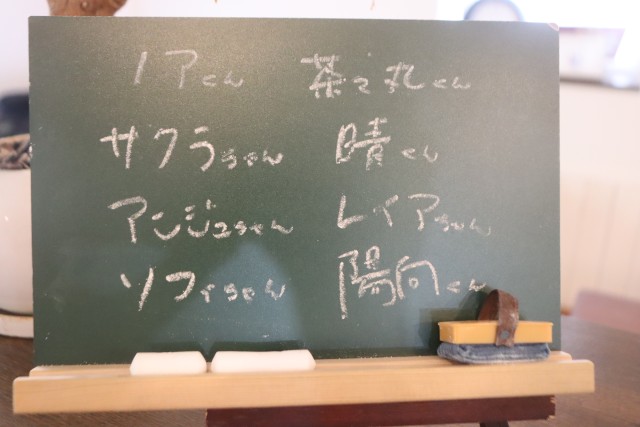 ノアくん 茶之丸くん
サクラちゃん 晴くん
アンジュちゃん レイアちゃん
ソフィちゃん 陽向くん